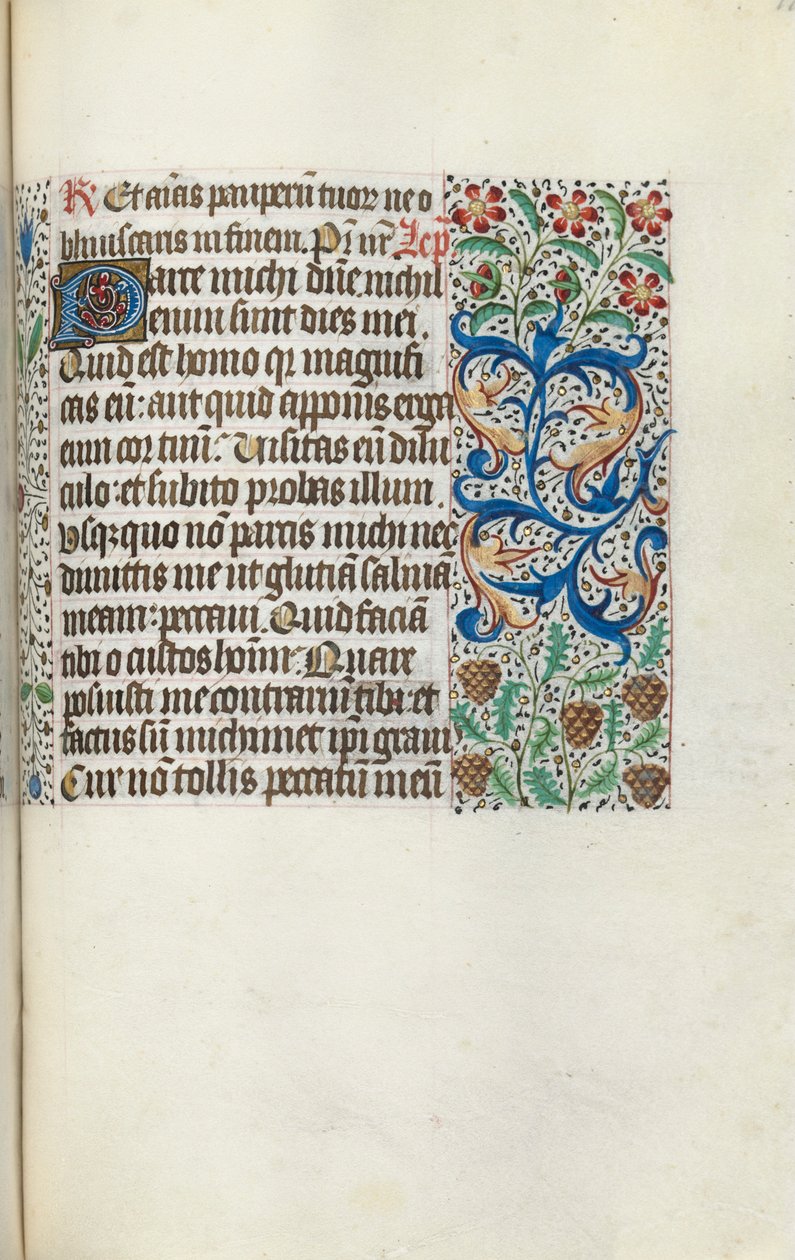 R Et aīas pauperū tuoꝝ ne o
bliuiscaris in finem. Pr̄ nr̄ Lep̄.
Parce michi dn̄e. nichil
enim sunt dies mei.
Quid est homo qꝛ magnifi
cas eū: aut quid apponis erga
eum cor tuū: Uisitas eū dilu
culo: et subito probas illum.
Usqꝫ quo nō parcis michi nec
dimittis me ut glutiā saliuā
meam: peccaui. Quid faciā
tibi o custos hom̄: Quare
posuisti me contrariū tibi: et
factus sū michimet ip̄i grauis
Cur nō tollis peccatū meū